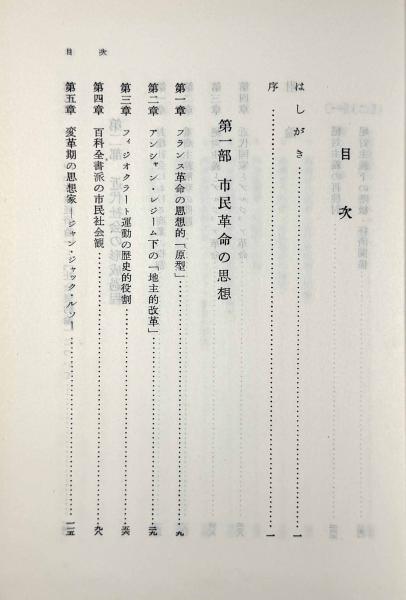 目次
はしがき……一
序……一
第一部 市民革命の思想
第一章 フランス革命の思想的「原型」……九
第二章 アンシャン・レジーム下の「地主的改革」……二九
第三章 フィジオクラート運動の歴史的役割……五六
第四章 百科全書派の市民社会観……九八
第五章 変革期の思想家―ジャン・ジャック・ルソー……一二五
目次